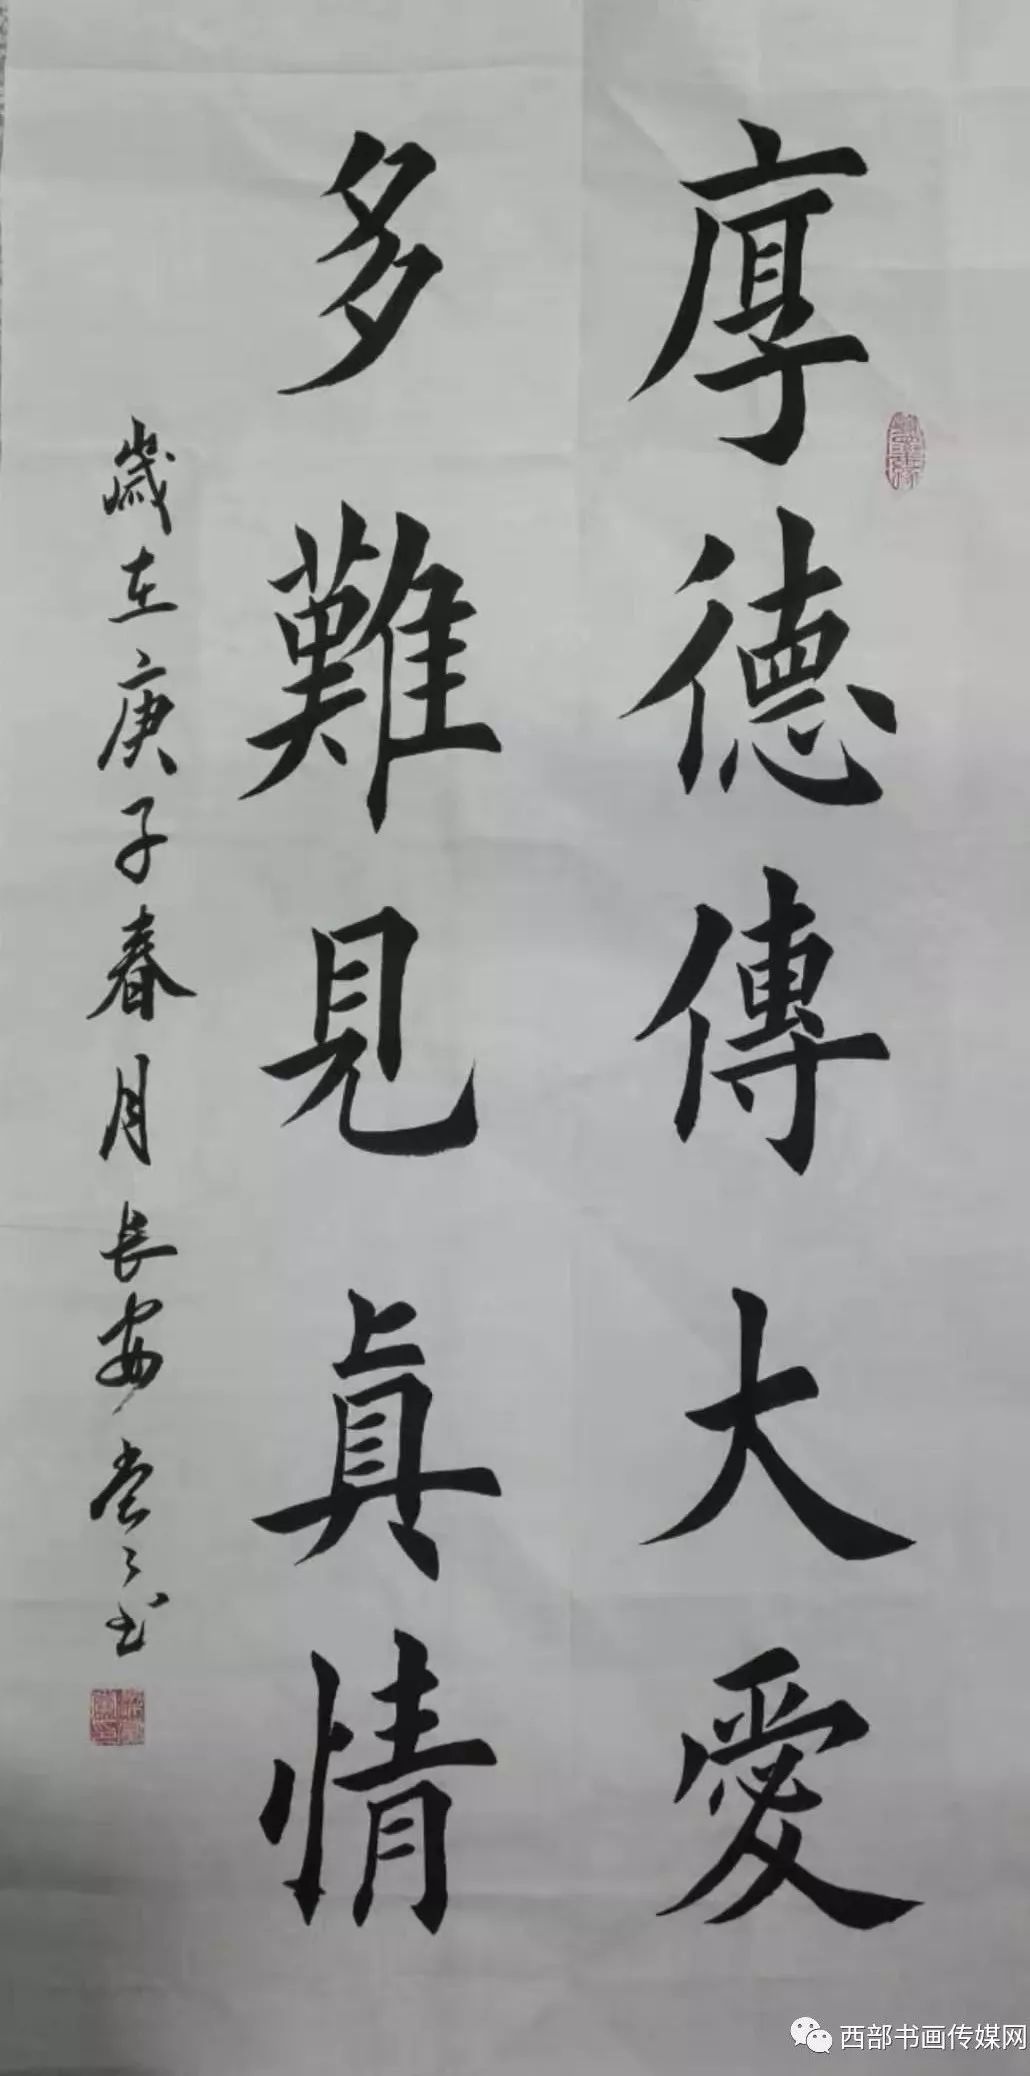 厚德傳大愛
多難見真情
歲在庚子春月長安
西部书画传媒网